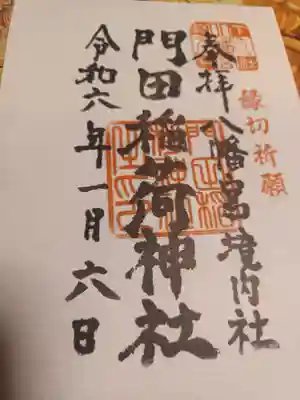 縁切祈願
奉拝 八幡宮境内社
門田稲荷神社
令和六年一月六日